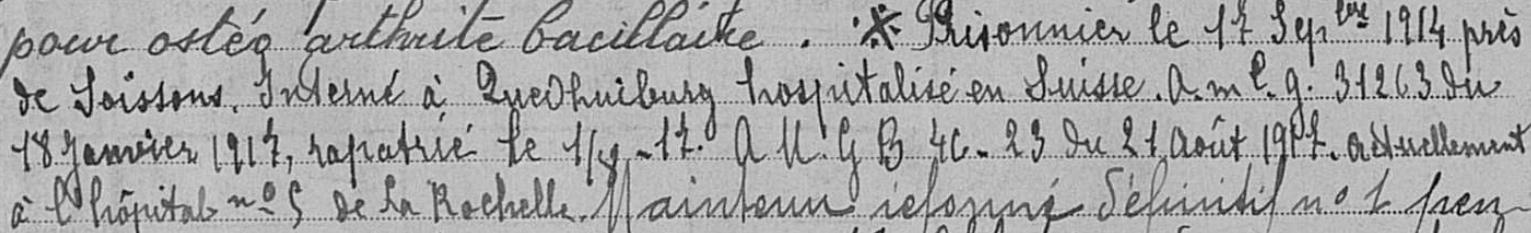 pour ostéo arthrite bacillaire. * Prisonnier le 17 Sepbre 1914 près
de Soissons. Interné à Quedhuiburg hospitalisé en Suisse. A.m C.g. 31263 du
18 Janvier 1917, rapatrié le 1/8-17. A M. G B 4C-23 du 21 Août 1917. actuellement
à l'hôpital no 5 de La Rochelle. Maintenu réformé définitif no 1 pen